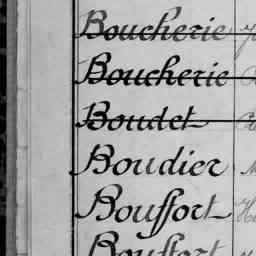 Boucherie
Boucherie
Boudet
Boudier
Bouffort
Bouffort